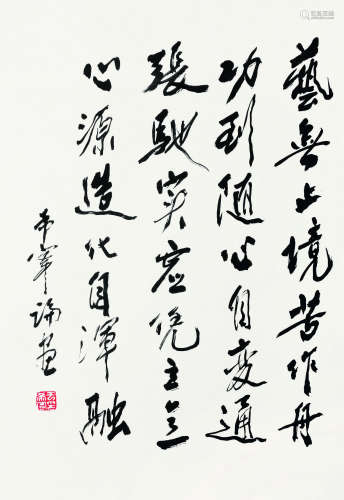 藝無止境苦作舟
功到隨心自變通
張馳實虛凭主意
心源造化自渾融
希寧論畫